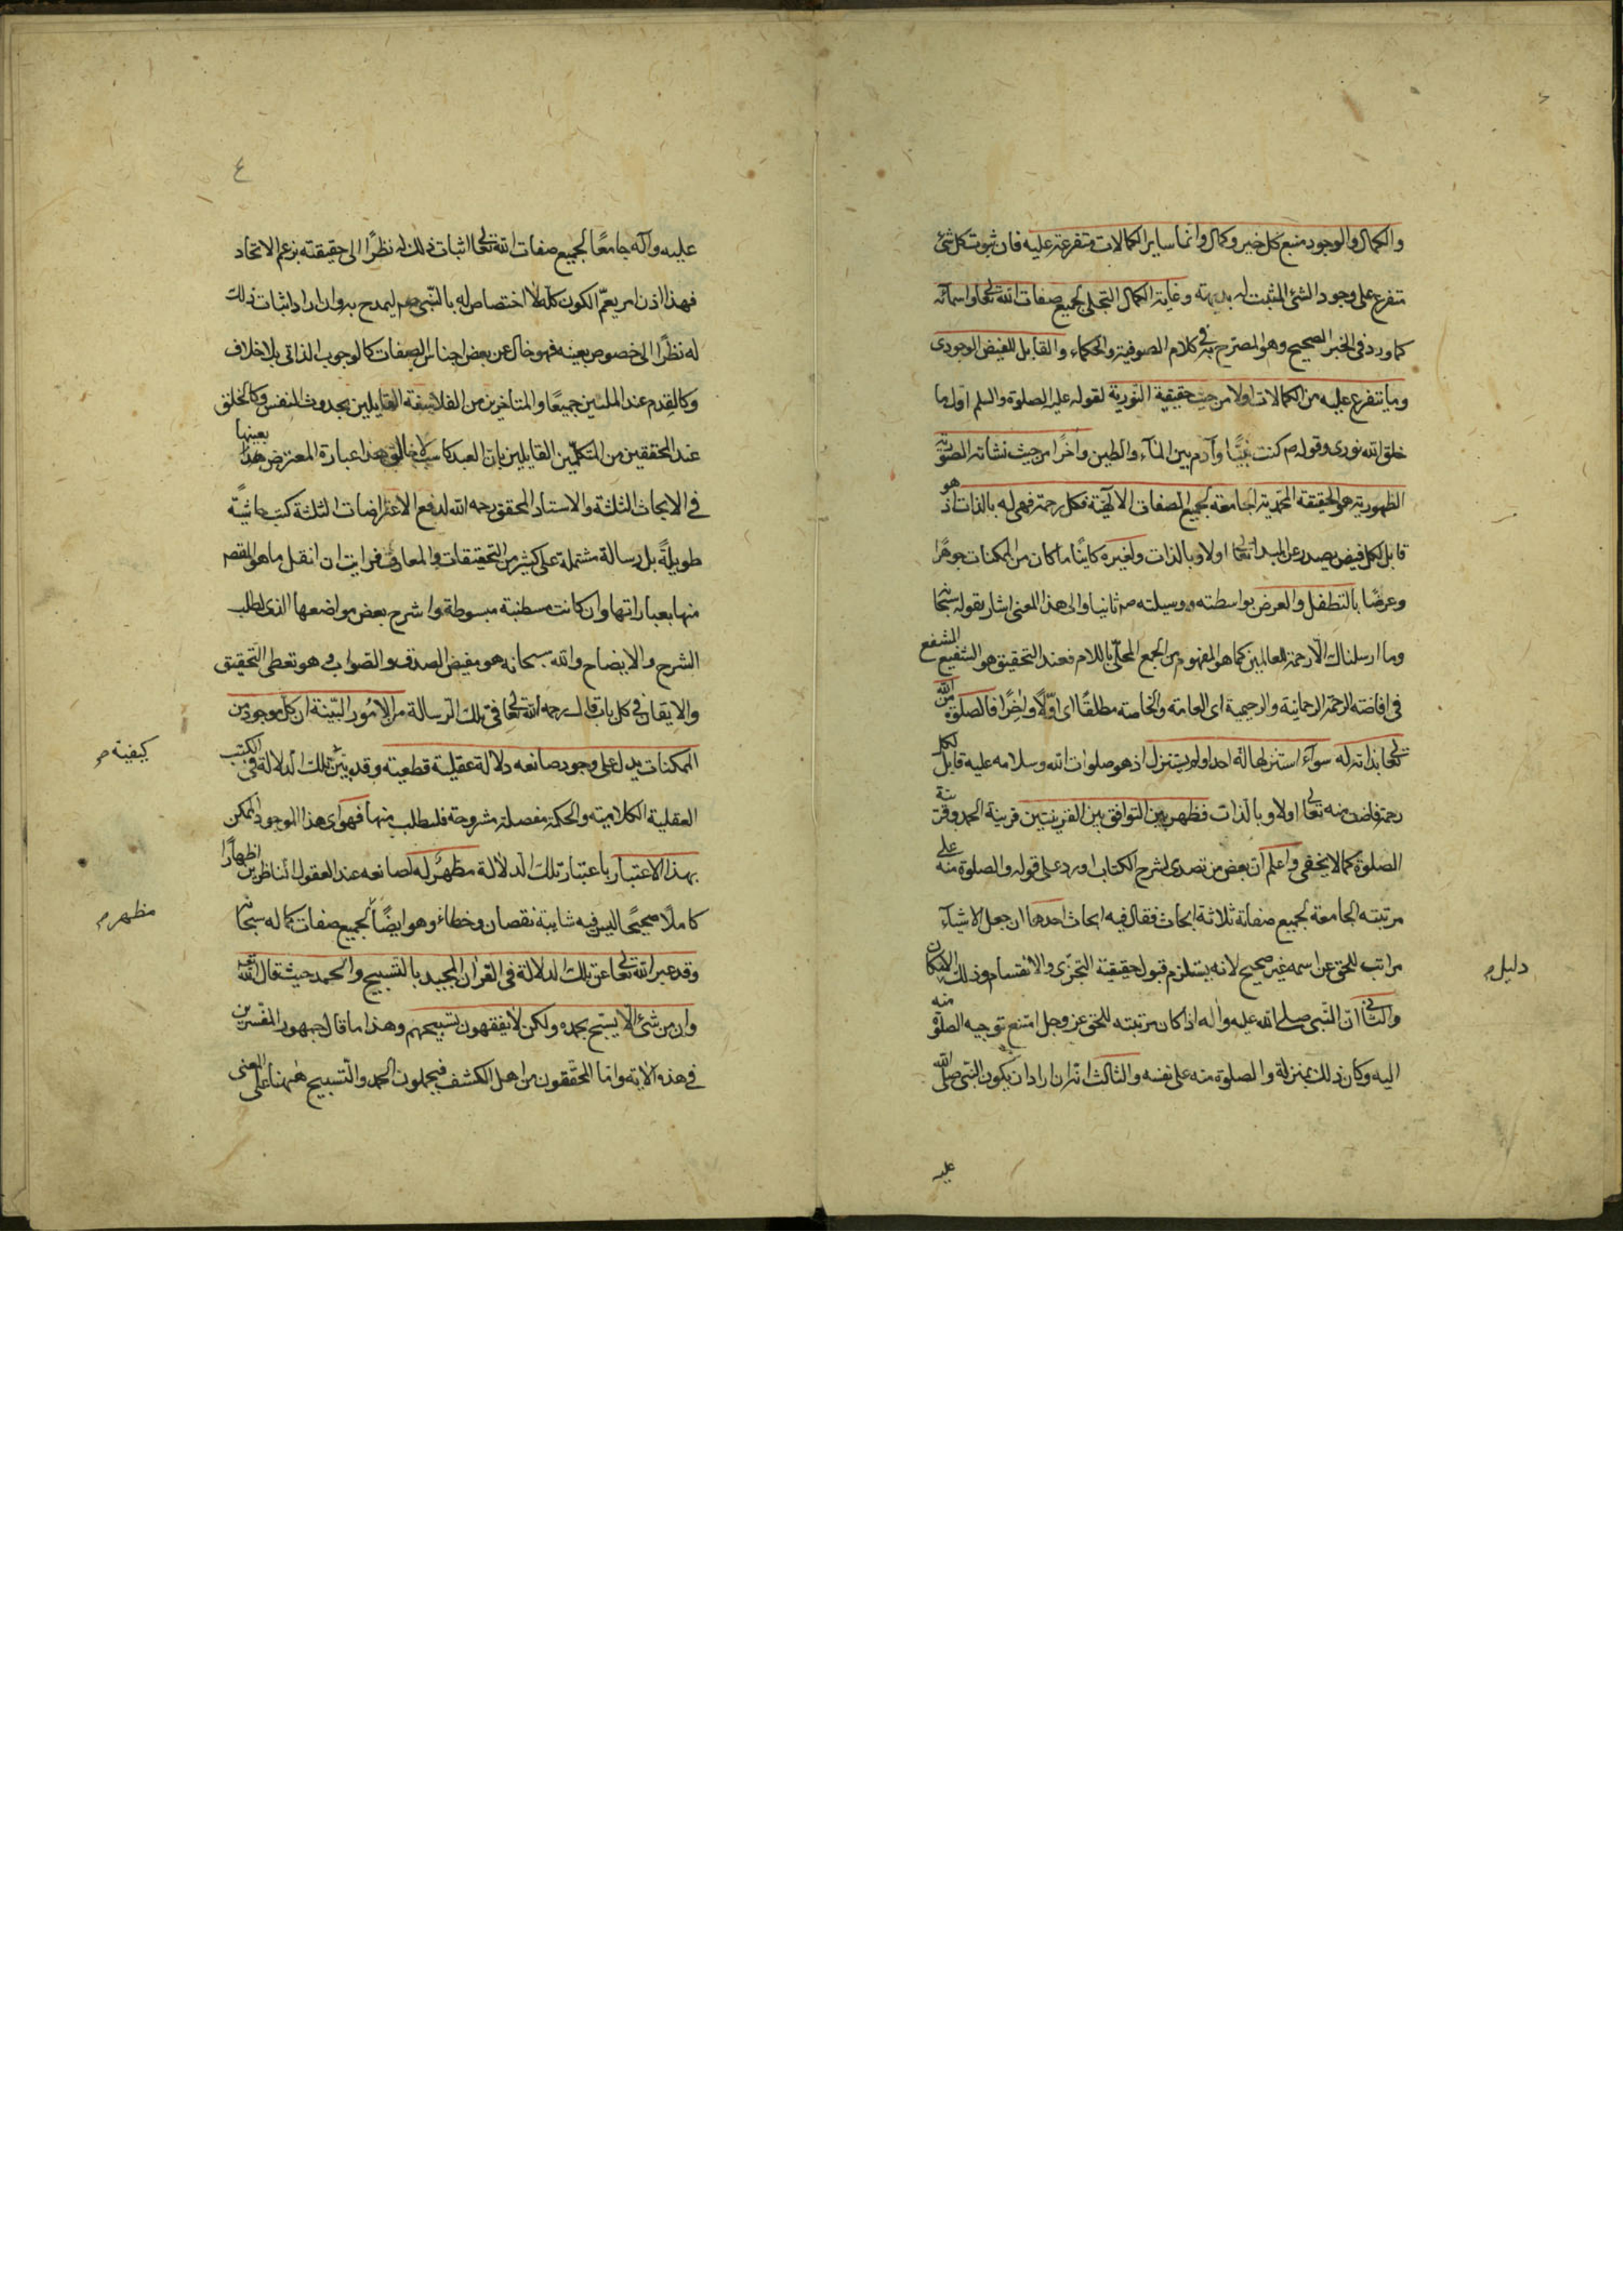 والكمال والوجود منبع كل خير وكمال وانما ساير الكمالات متفرعة عليه فان ثبوت كل شئ
متفرع على وجود الشئ المثبت له بديهته وغاية الكمال التجلى لجميع صفات الله تعالى واسمائه
كما ورد فى الخبر الصحيح وهو المصرح به فى كلام الصوفية والحكماء والقابل للفيض الوجودى
وما يتفرع عليه من الكمالات اولا من حيث حقيقية النورية لقوله عليه الصلوة والسلم اول ما
خلق الله نورى وقوله ص كنت نبيًّا وآدم بين المآء والطين وآخرًا من حيث نشاته الصورية
الظهورية هو الحقيقة المحمدية الجامعة لجميع الصفات الالهية فكل رحمة فهى له بالذات اذ هو
قابل لكل فيض يصدر عن المبدا تعالى اولا وبالذات ولغيره كاينًا ما كان من الممكنات جوهرًا
وعرضًا بالتطفل والعرض بواسطته ووسيلته ص ثانيا والى هذا المعنى اشار بقوله سبحانه
وما ارسلناك الا رحمة للعالمين كما هو المفهوم من الجمع المحلّى باللام فعند التحقيق هو الشفيع المشفع
فى افاضته الرحمة الرحمانية والرحيمية اى العامة والخاصة مطلقًا اى اوّلًا وايضًا فالصلوة من الله
تعالى بذاته له سوآء استنزلها له احد اولم يستنزل اذ هو صلوات الله وسلامه عليه قابل لكل
رحمة فاضت منه تعالى اولا وبالذات فظهر بين التوافق بين القرينتين قرينة الحمد وقرينة
الصلوة كما لا يخفى واعلم انّ بعض من تصدى لشرح الكتاب اورد على قوله والصلوة منه على
مرتبته الجامعة لجميع صفاته ثلاثة ابحاث فقال فيه ابحاث احدها ان جعل الاشيآء
مراتب للحق عن اسمه غير صحيح لانه يستلزم قبول حقيقية التجزى والانقسام وذلك الامكان
دليل م
والثانى انّ النبى صلى الله عليه واله اذا كان مرتبته للحق عز وجل امتنع توجيه الصلوة منه
اليه وكان ذلك بمنزلة والصلوة منه على نفسه والثالث انه ان اراد ان يكون النبى صلى الله
عليه
٤
عليه وآله جامعًا لجميع صفات الله تعالى اثبات ذلك له نظرًا الى حقيقته بزعم الاتحاد
فهذا اذن امر يعمّ الكون كله لا اختصاص له بالنّبى صم ليمدح به وان اراد اثبات ذلك
له نظرًا الى خصوص بعينه فهو خال عن بعض اجناس الصفات كالوجوب الذاتى بلا خلاف
وكالقدم عند المليين جميعًا والمتأخرين من الفلاسفة القايلين بحدوث النفس وكالخلق
عند المحققين من المتكلمين القايلين بان العبد كاسب لا خالق هذا عبارة المعترض بعينها
فى الابحاث الثلثة والاستاد المحقق رحمه الله لدفع الاعتراضات الثلثة كتب حاشيةً
طويلةً بل رسالة مشتملة على كثير من التحقيقات والمعارف فرايت ان انقل ما هو المقصم
منها بعباراتها وان كانت مسطنبة مبسوطة واشرح بعض مواضعها الذى لطلب
الشرح والايضاح والله سبحانه هو مفيض الصدق والصواب وهو تعطى التحقيق
والايقان فى كل باب قال رحمه الله تعالى فى تلك الرسالة من الامُور البيّنة ان كل موجود من
الممكنات يدل على وجود صانعه دلالة عقلية قطعية وقد بيّن تلك الدلالة فى الكتب
كيفية م
العقلية الكلامية والحكمة مفصلة مشروحة فلتطلب منها فهو اى هذا الموجود الممكن
بهذا الاعتبار باعتبار تلك الدلالة مظهرٌ له لصانعه عند العقول الناظرين اظهارًا
كاملًا صحيحًا ليس فيه شايبة نقصان وخطاء وهو ايضًا لجميع صفات كماله سبحانه
مظهر م
وقد عبر الله تعالى عن تلك الدلالة فى القران المجيد بالتسبيح والحمد حيث قال الله
وان من شئ الا يسبح بحمده ولكن لا تفقهون تسبيحهم وهذا ما قال جمهور المفسرين
فى هذه الآية واما المحققون من اهل الكشف فيحملون الحمد والتسبيح ههنا على المعنى